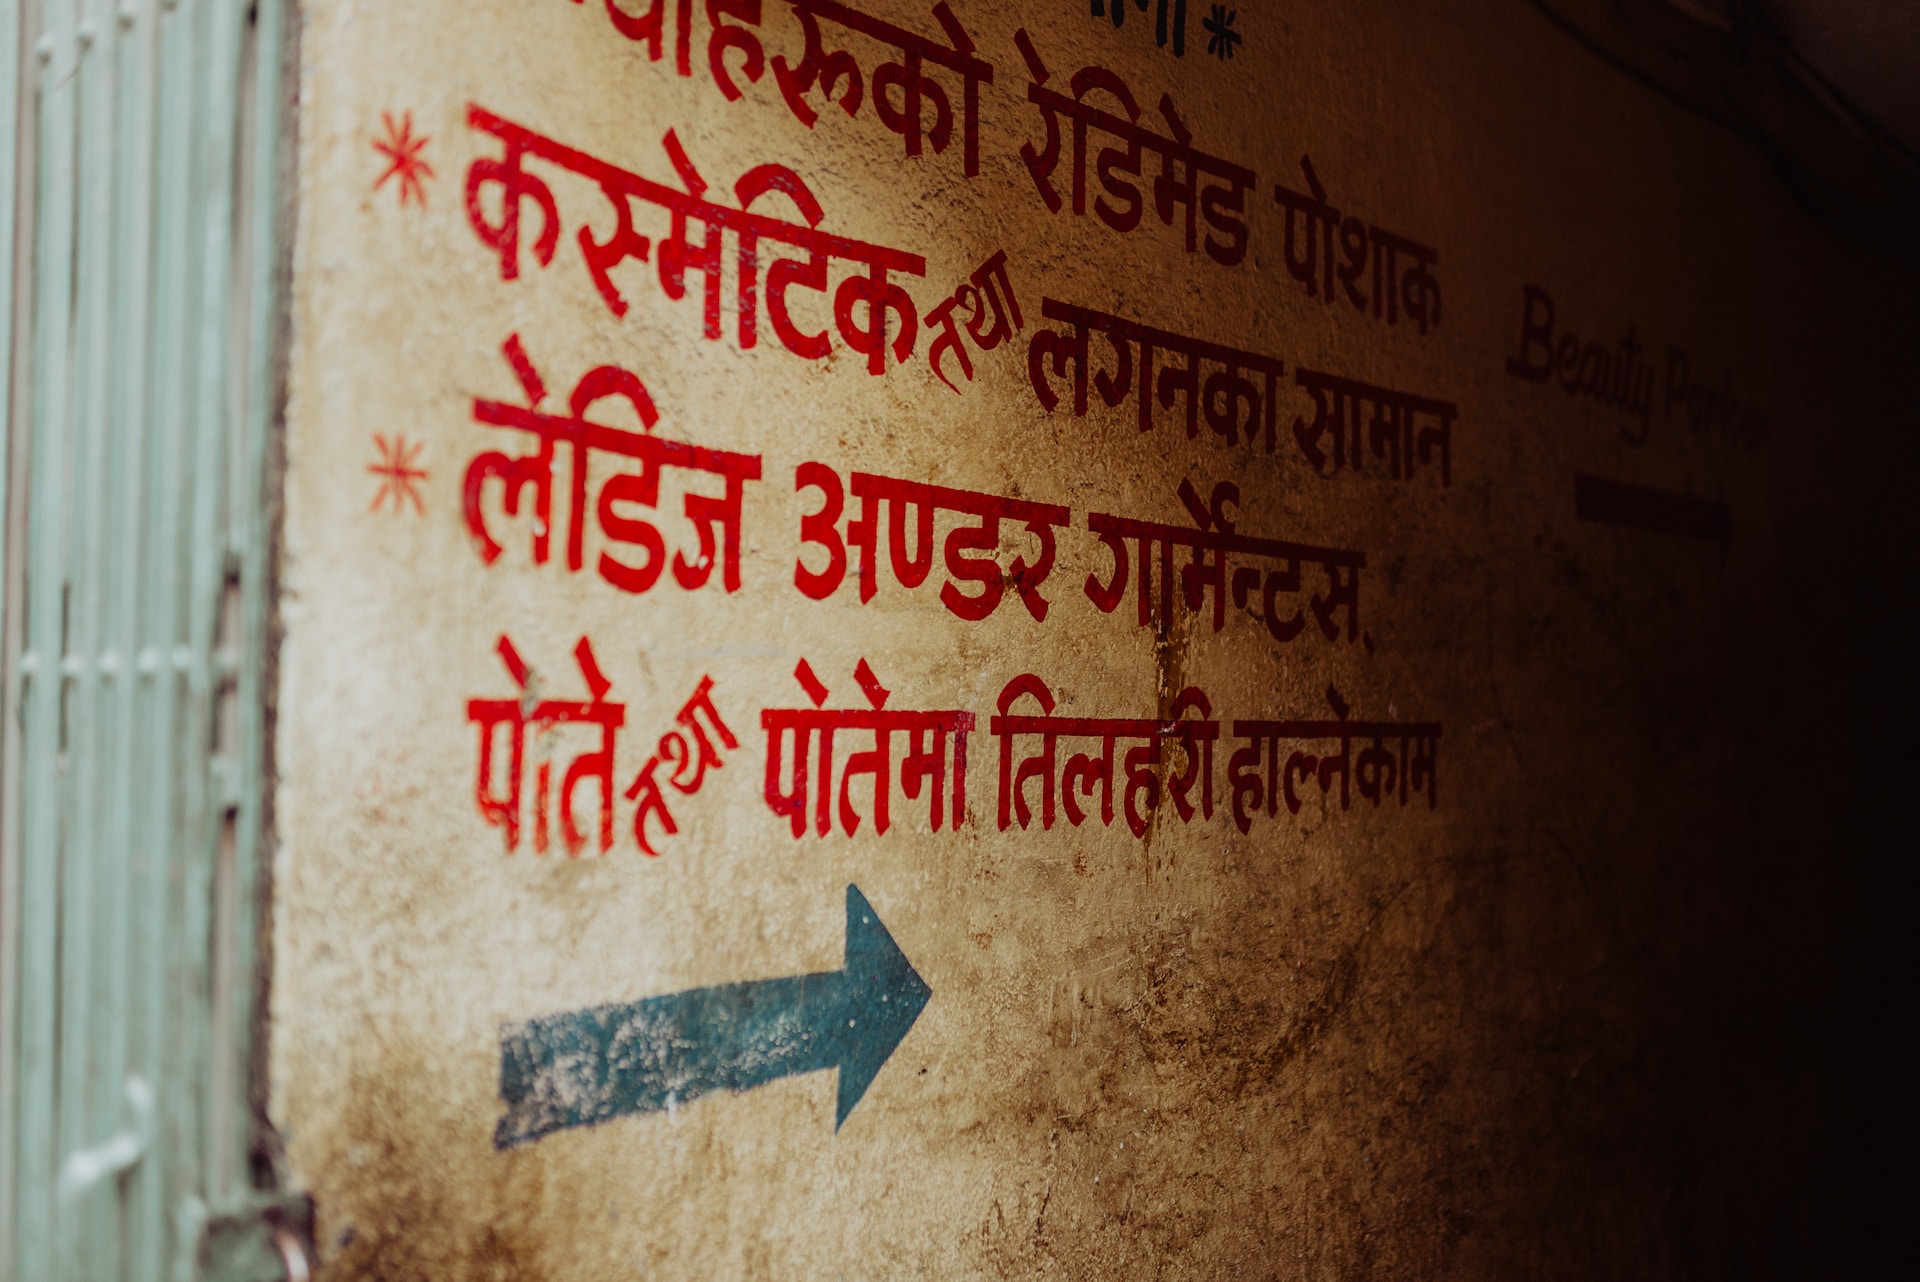 रेडिमेड पोशाक
कस्मेटिक तथा लगनका सामान
लेडिज अण्डर गार्मेन्टस्
पोते तथा पोतेमा तिलहरी हाल्नेकाम
Beauty Parlour